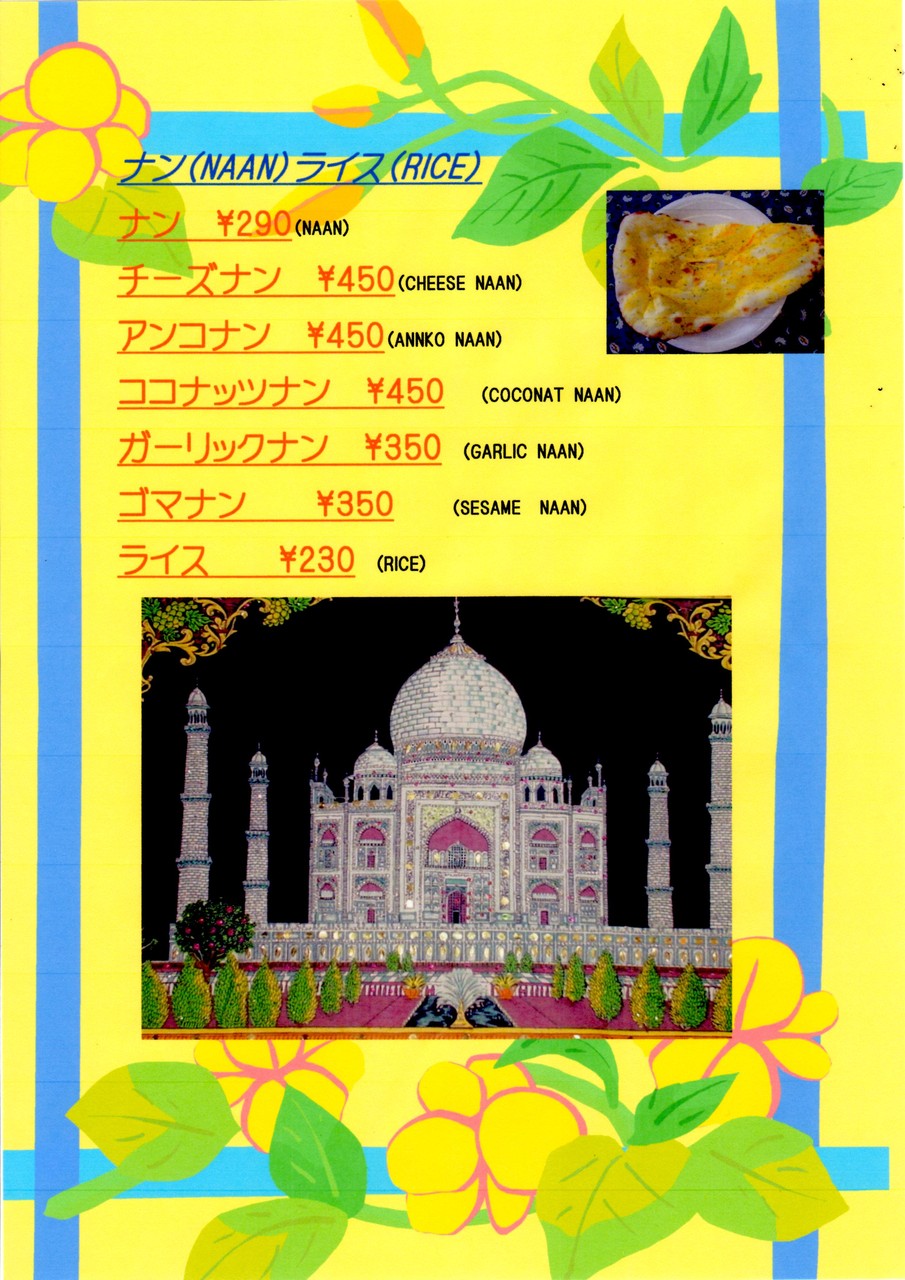 ナン(NAAN)ライス(RICE)
ナン ¥290(NAAN)
チーズナン ¥450(CHEESE NAAN)
アンコナン ¥450(ANNKO NAAN)
ココナッツナン ¥450 (COCONAT NAAN)
ガーリックナン ¥350 (GARLIC NAAN)
ゴマナン ¥350 (SESAME NAAN)
ライス ¥230 (RICE)